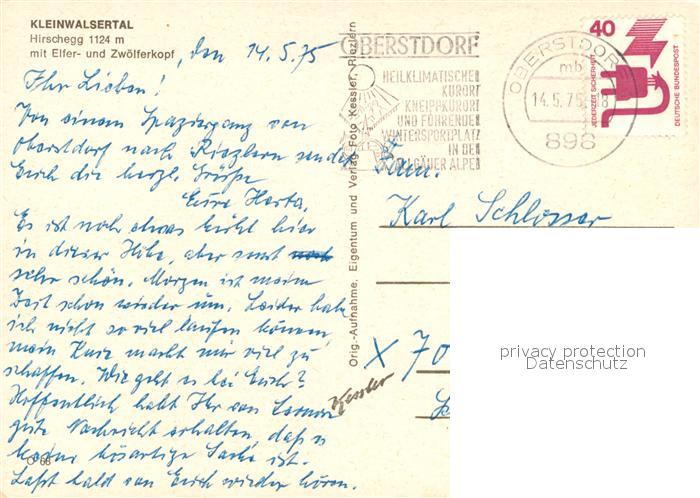 KLEINWALSERTAL
Hirschegg 1124 m
mit Elfer- und Zwölferkopf
, den 14.5.75
Ihr Lieben!
Von einem Spaziergang von
Oberstdorf nach Riezlern sendet
Euch die herzl. Grüße
Eure Herta.
Es ist noch etwas kühl hier
in dieser Höhe, aber sonst
sehr schön. Morgen ist meine
Zeit schon wieder um. Leider habe
ich nicht so viel laufen können,
mein macht mir viel zu
schaffen. Wie geht es bei Euch?
Hoffentlich habt Ihr von
gute Nachricht erhalten, daß es
keine bösartige Sache ist.
Laßt bald von Euch wieder hören.
O 68
Kessler
Orig.-Aufnahme, Eigentum und Verlag Foto Kessler, Riezlern
OBERSTDORF
HEILKLIMATISCHER
KURORT
KNEIPPKURORT
UND FÜHRENDER
WINTERSPORTPLATZ
IN DEN
ALLGÄUER ALPEN
OBERSTDORF
mb
14.5.75-8
898
40
JEDERZEIT SICHERHEIT
DEUTSCHE BUNDESPOST
Fam.
Karl Schlosser
X 70
privacy protection
Datenschutz